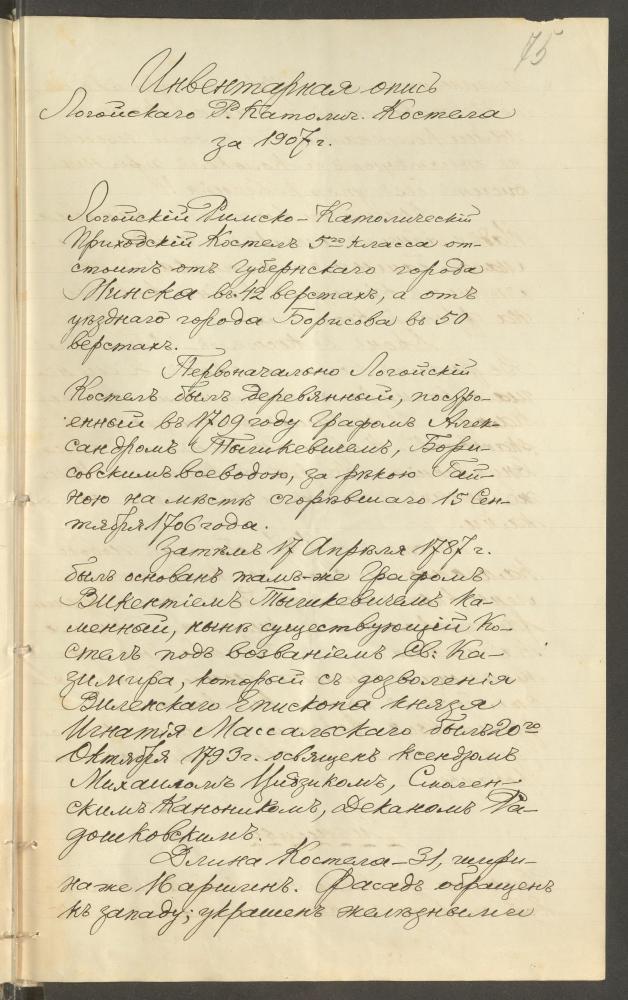 75
Инвентарная опись
Логойскаго Р. Католич. Костела
за 1907 г.
Логойскій Римско-Католическій
Приходскій Костелъ 5го класса от-
стоитъ отъ губернскаго города
Минска въ 42 верстахъ, а отъ
уѣзднаго города Борисова въ 50
верстахъ.
Первоначально Логойскій
Костелъ былъ деревянный, постро-
енный въ 1709 году Графомъ Алек-
сандромъ Тышкевичемъ, Бори-
совскимъ воеводою, за рѣкою Гай-
ною на мѣстѣ сгорѣвшаго 15 Сен-
тября 1706 года.
Затѣмъ 17 Апрѣля 1787 г.
былъ основанъ тамъ-же Графомъ
Викентіемъ Тышкевичемъ ка-
менный, нынѣ существующій Ко-
стелъ подъ возваніемъ Св: Ка-
зимира, который съ дозволенія
Виленскаго Епископа князя
Игнатія Массальскаго былъ 20го
Октября 1793 г. освященъ ксендзомъ
Михаиломъ Цидзикомъ, Смолен-
скимъ Каноникомъ, Деканомъ Ра-
дошковскимъ.
Длина Костела – 31, шири-
на же 16 аршинъ. Фасадъ обращенъ
къ западу; украшенъ желѣзными